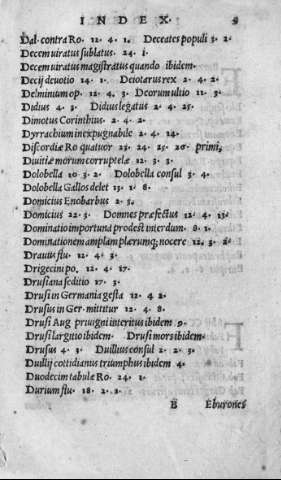 INDEX
Dal. contra Ro. 12. 4. 1. Deceates populi 3. 2.
Decemuiratus sublatus. 24. 1.
Decemuiratus magistratus quando ibidem.
Decij deuotio 14. 1. Deiotarus rex 2. 4. 2.
Delminium op. 12. 4. 3. Deorum ultio 11. 3.
Didius 4. 3. Didius legatus 2. 4. 25.
Dimotus Corinthius. 2. 4. 2.
Dyrrachium inexpugnabile 2. 4. 14.
Discordiæ Ro quatuor 23. 24. 25. 26. primi,
Diuitiæ morum corruptelæ 12. 3. 3.
Dolobella 10. 3. 2. Dolobella consul 3. 4.
Dolobella Gallos delet 13. 1. 8.
Domicius Enobarbus 2. 3.
Domicius 22. 3. Domnes præfectus 12. 4. 13.
Dominatio importuna prodest interdum. 8. 1.
Dominationem amplam plerunq; nocere 12. 3. 2.
Drauus flu. 12. 4. 3.
Drigecini po. 12. 4. 17.
Drusiana seditio 17. 3.
Drusi in Germania gesta 12. 4 2.
Drusus in Ger. mittitur 12. 4. 8.
Drusi Aug. priuigni interitus ibidem 9.
Drusi largitio ibidem. Drusi mors ibidem.
Drusus 4. 3. Duillius consul 2. 2. 3.
Duillij cottidianus triumphus ibidem 4.
Duodecim tabulæ Ro. 24. 1.
Durium flu. 18. 2. 2.
B Eburones